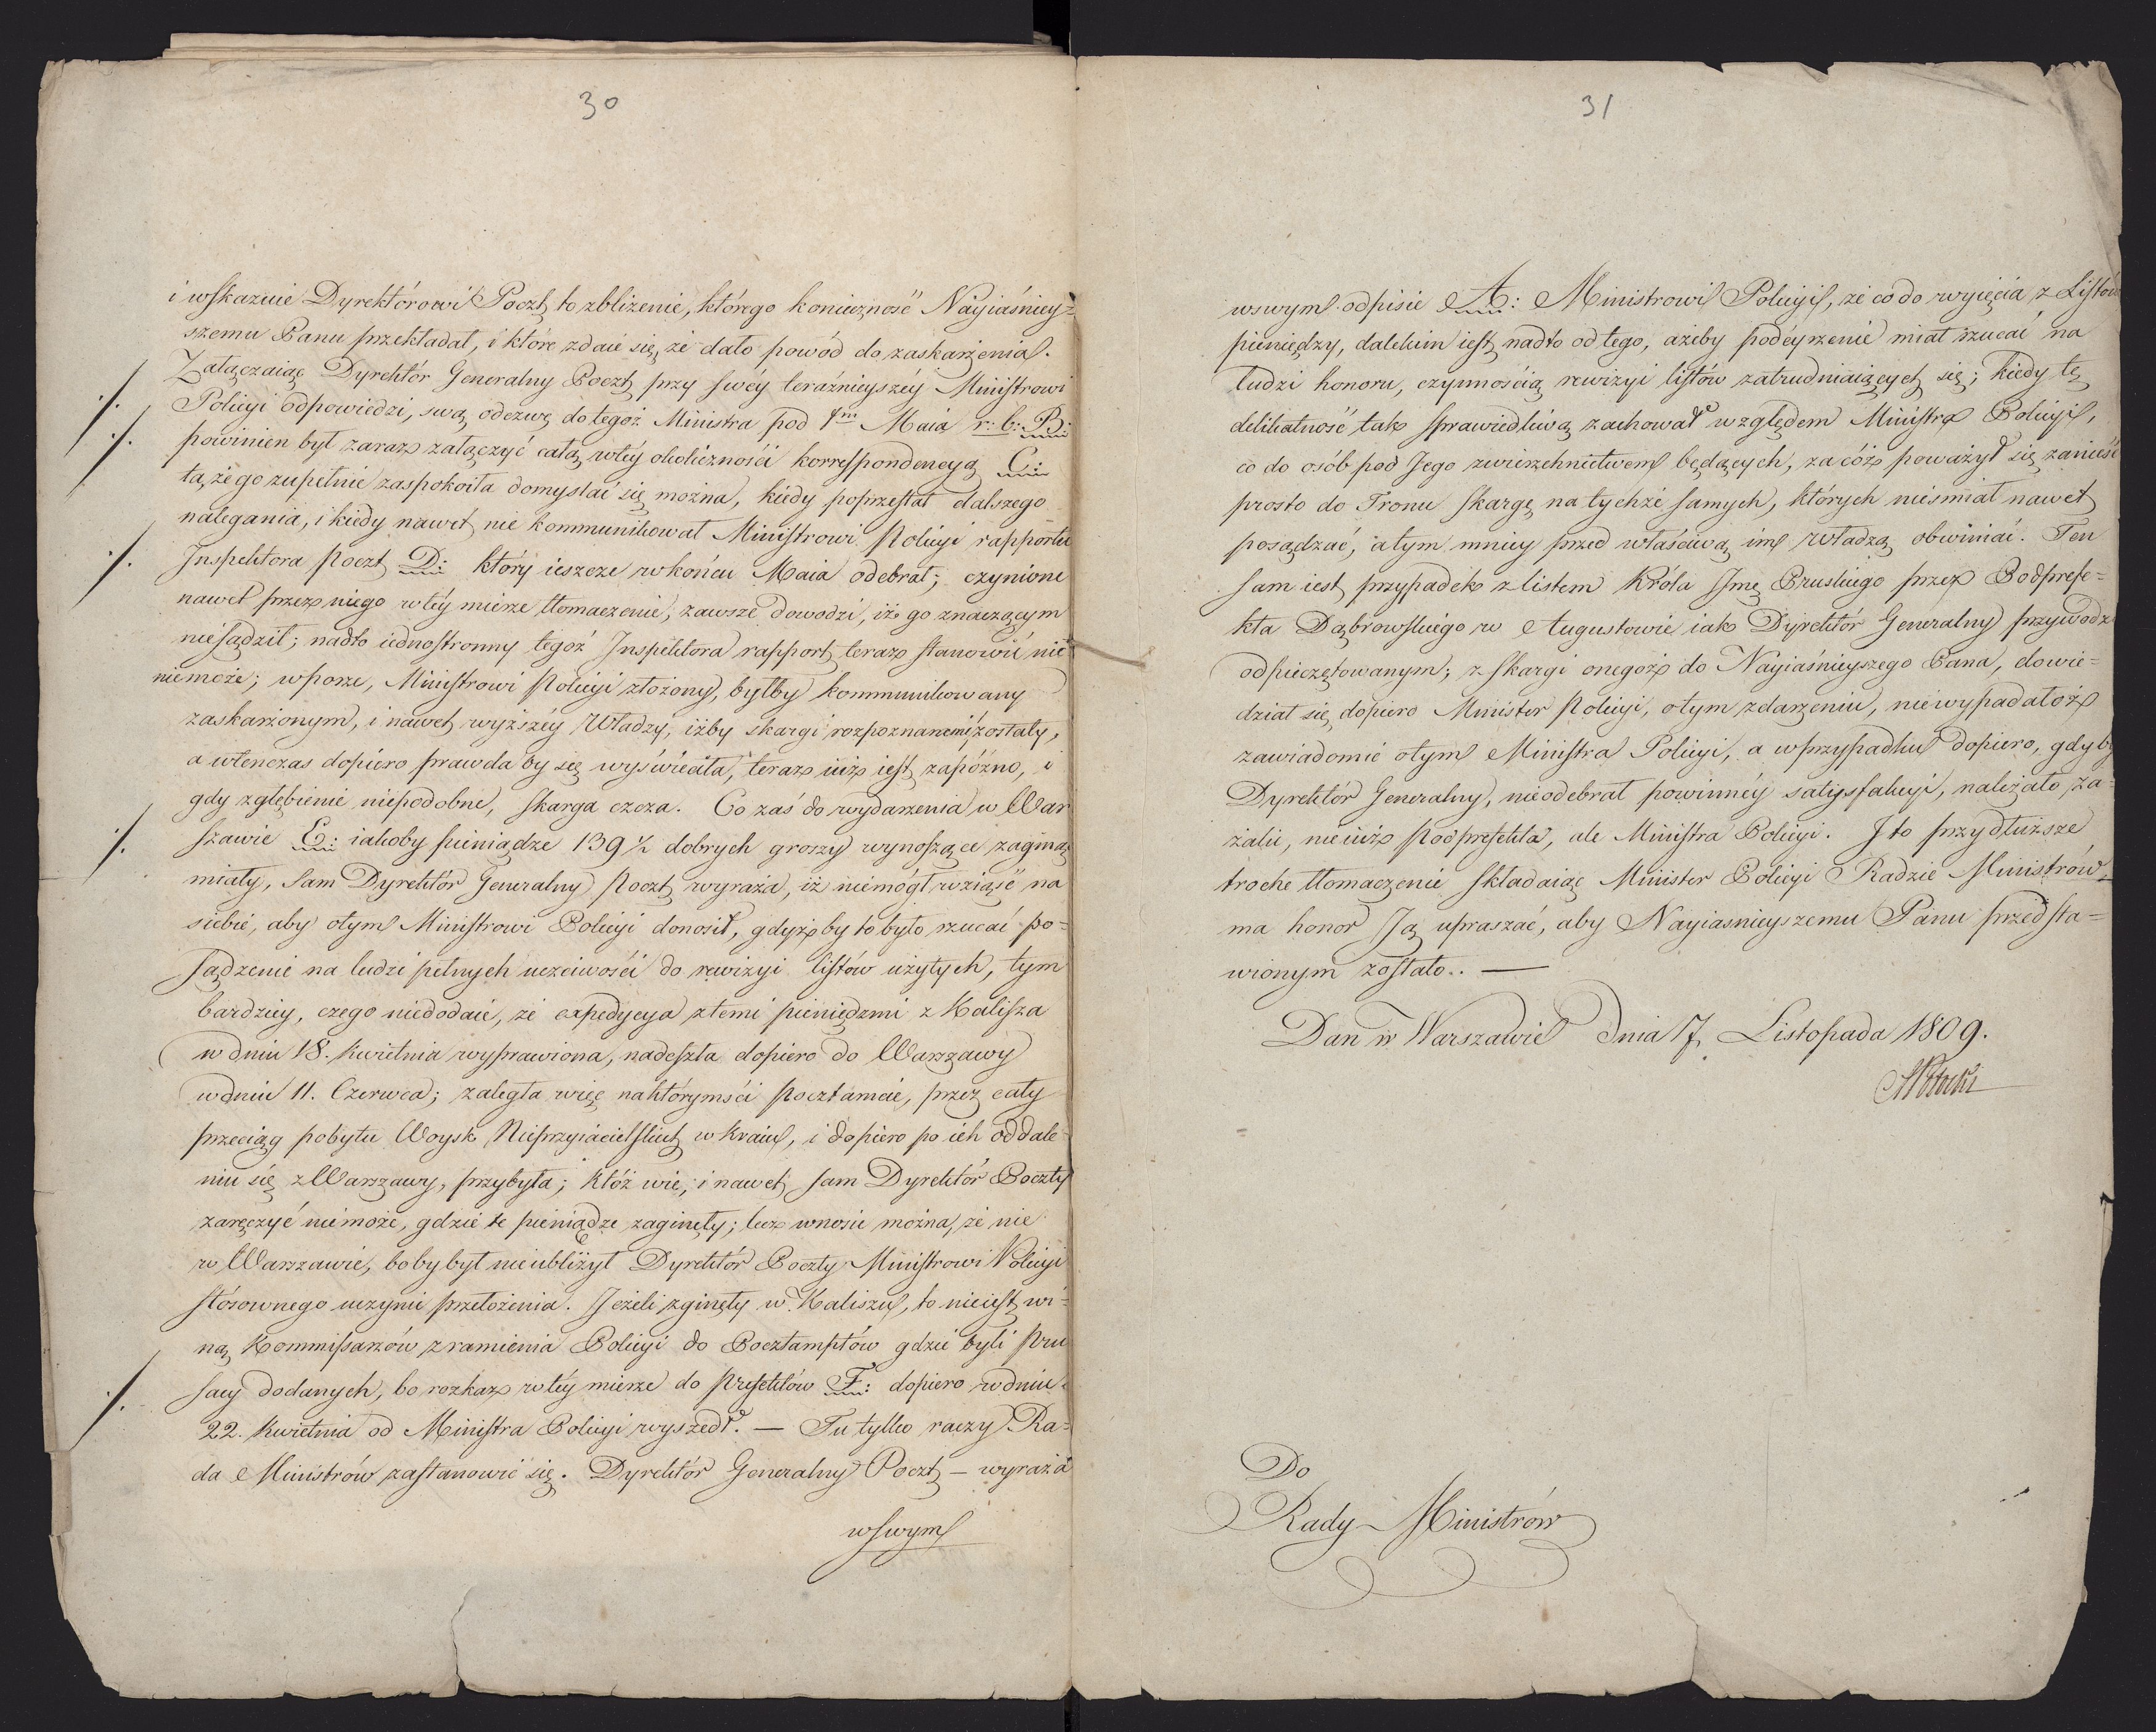 30
i wskazuie Dyrektórowi Poczt to zbliżenie, którego konieczność Nayiaśniey-
szemu Panu przekładał, i które zdaie się, że dało powód do zaskarżenia.
Załączaiąc Dyrektór Generalny Poczt przy swéy teraźnieyszéy Ministrowi
Policyi odpowiedzi, swą odezwę do tegoż Ministra pod 1ᵐ Maia r: b: B:
powinien był zaraz załączyć całą w téy okoliczności korrespondencyą C:
ta, że go zupełnie zaspokoiła domyslać się można, kiedy poprzestał dalszego
nalegania, i kiedy nawet nie kommunikował Ministrowi Policyi rapportu
Inspektora Poczt D: który ieszcze w końcu Maia odebrał; czynione
nawet przez niego w téy mierze tłomaczenie, zawsze dowodzi, iż go znaczącym
niesądził; nadto iednostronny tegoż Inspektora rapport teraz stanowić nic
niemoże; w porze, Ministrowi Policyi złożony, byłby kommunikowany
zaskarżonym, i nawet wyższéy Władzy, iżby skargi rozpoznanemi zostały,
a wtenczas dopiero prawda by się wyświeciła, teraz iuż iest zapóźno, i
gdy zgłębienie niepodobne, skarga czcza. Co zaś do wydarzenia w War
szawie E: iakoby pieniądze 139 ½ dobrych groszy wynoszące zaginąć
miały, sam Dyrektór Generalny Poczt wyraża, iż niemógł wziąść na
siebie, aby otym Ministrowi Policyi donosił, gdyżby to było rzucać po-
sądzenie na ludzi pełnych uczciwości do rewizyi listów użytych, tym
bardziey, czego niedodaie, że expedycya z temi pieniędzmi z Kalisza
w dniu 18. Kwietnia wyprawiona, nadeszła dopiero do Warszawy
w dniu 11. Czerwca; zaległa więc na którymści Pocztamcie, przez cały
przeciąg pobytu Woysk Nieprzyiacielskich w kraiu, i dopiero po ich oddale-
niu się z Warszawy, przybyła; któż wie, i nawet sam Dyrektór Poczty
zaręczyć niemoże, gdzie te pieniądze zaginęły; lecz wnosić można, że nie
w Warszawie, boby był nieubliżył Dyrektór Poczty Ministrowi Policyi
stósownego uczynić przełożenia. Jeżeli zginęły w Kaliszu, to nieiest wi-
ną Kommissarzów z ramienia Policyi do Pocztamptów gdzie byli Pru
sacy dodanych, bo rozkaz w téy mierze do Prefektów F: dopiero w dniu
22. Kwietnia od Ministra Policyi wyszedł. — Tu tylko raczy Ra-
da Ministrów zastanowić się. Dyrektór Generalny Poczt — wyraża
w swym
31
w swym odpisie A: Ministrowi Policyi, że co do wyięcia z Listów
pieniędzy, dalekim iest nadto od tego, ażeby podéyrzenie miał rzucać na
ludzi honoru, czynnością rewizyi listów zatrudniaiących się; kiedy tę
delikatność tak sprawiedliwą zachował względem Ministra Policyi,
co do osób pod Jego zwierzchnictwem będących, za cóż poważył się zanieść
prosto do Tronu skargę na tychże samych, których nieśmiał nawet
posądzać, a tym mniey przed właściwą im Władzą obwiniać. Ten
sam iest przypadek z listem Króla Jmę Pruskiego przez Podprefe-
kta Dąbrowskiego w Augustowie iak Dyrektór Generalny przywodzi
odpieczętowanym; z skargi onegoż do Nayiaśnieyszego Pana, dowie-
dział się dopiero Minister Policyi, otym zdarzeniu, niewypadałoż
zawiadomić otym Ministra Policyi, a w przypadku dopiero, gdyby
Dyrektór Generalny, nieodebrał powinnéy satysfakcyi, należało za-
żalić, nieiuż Podprefekta, ale Ministra Policyi. J to przydłuższe
troche tłomaczenie składaiąc Minister Policyi Radzie Ministrów,
ma honor Ją upraszać, aby Nayiasnieyszemu Panu przedsta-
wionym zostało. . —
Dan w Warszawie dnia 17 Listopada 1809.
APotocki
Do
Rady Ministrów